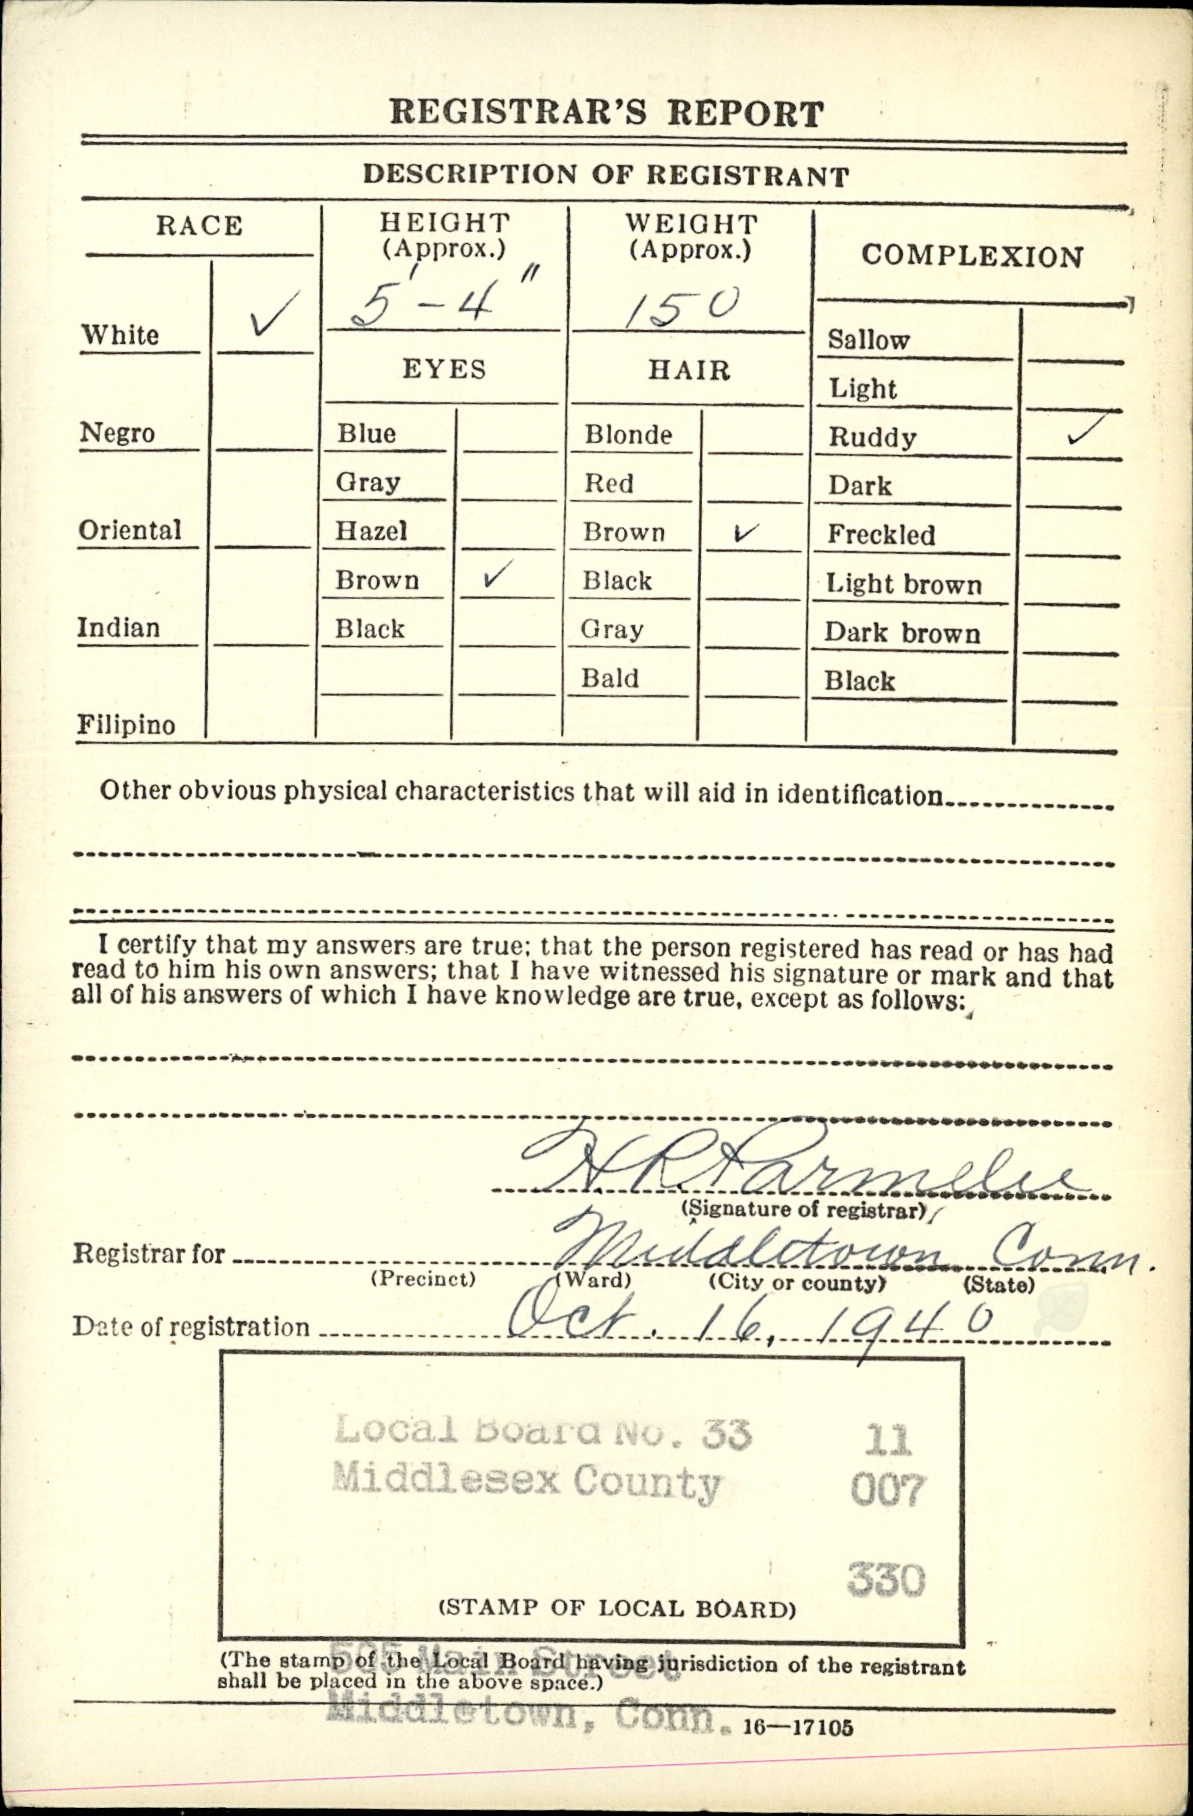 REGISTRAR'S REPORT
DESCRIPTION OF REGISTRANT
RACE
HEIGHT
(Approx.)
WEIGHT
(Approx.)
COMPLEXION
5'-4"
150
White ✓
Sallow
EYES
HAIR
Light
Negro
Blue
Blonde
Ruddy ✓
Gray
Red
Dark
Oriental
Hazel
Brown ✓
Freckled
Brown ✓
Black
Light brown
Indian
Black
Gray
Dark brown
Bald
Black
Filipino
Other obvious physical characteristics that will aid in identification
I certify that my answers are true; that the person registered has read or has had
read to him his own answers; that I have witnessed his signature or mark and that
all of his answers of which I have knowledge are true, except as follows:
H. R. Parmelee
(Signature of registrar)
Registrar for Middletown Conn.
(Precinct) (Ward) (City or county) (State)
Date of registration Oct. 16, 1940
Local Board No. 33 11
Middlesex County 007
330
(STAMP OF LOCAL BOARD)
505 Main Street
(The stamp of the Local Board having jurisdiction of the registrant
shall be placed in the above space.)
Middletown, Conn.
16—17105